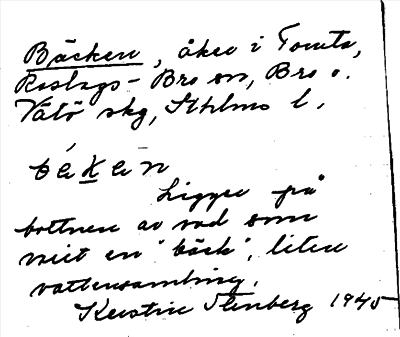 Bäcken, åker i Tomta,
Roslags-Bro sn, Bro o.
Vätö skg, Sthlms l.
bɛ́kɛn
Ligger på
bottnen av vad som
varit en "bäck", liten
vattensamling.
Kerstin Stenberg 1945